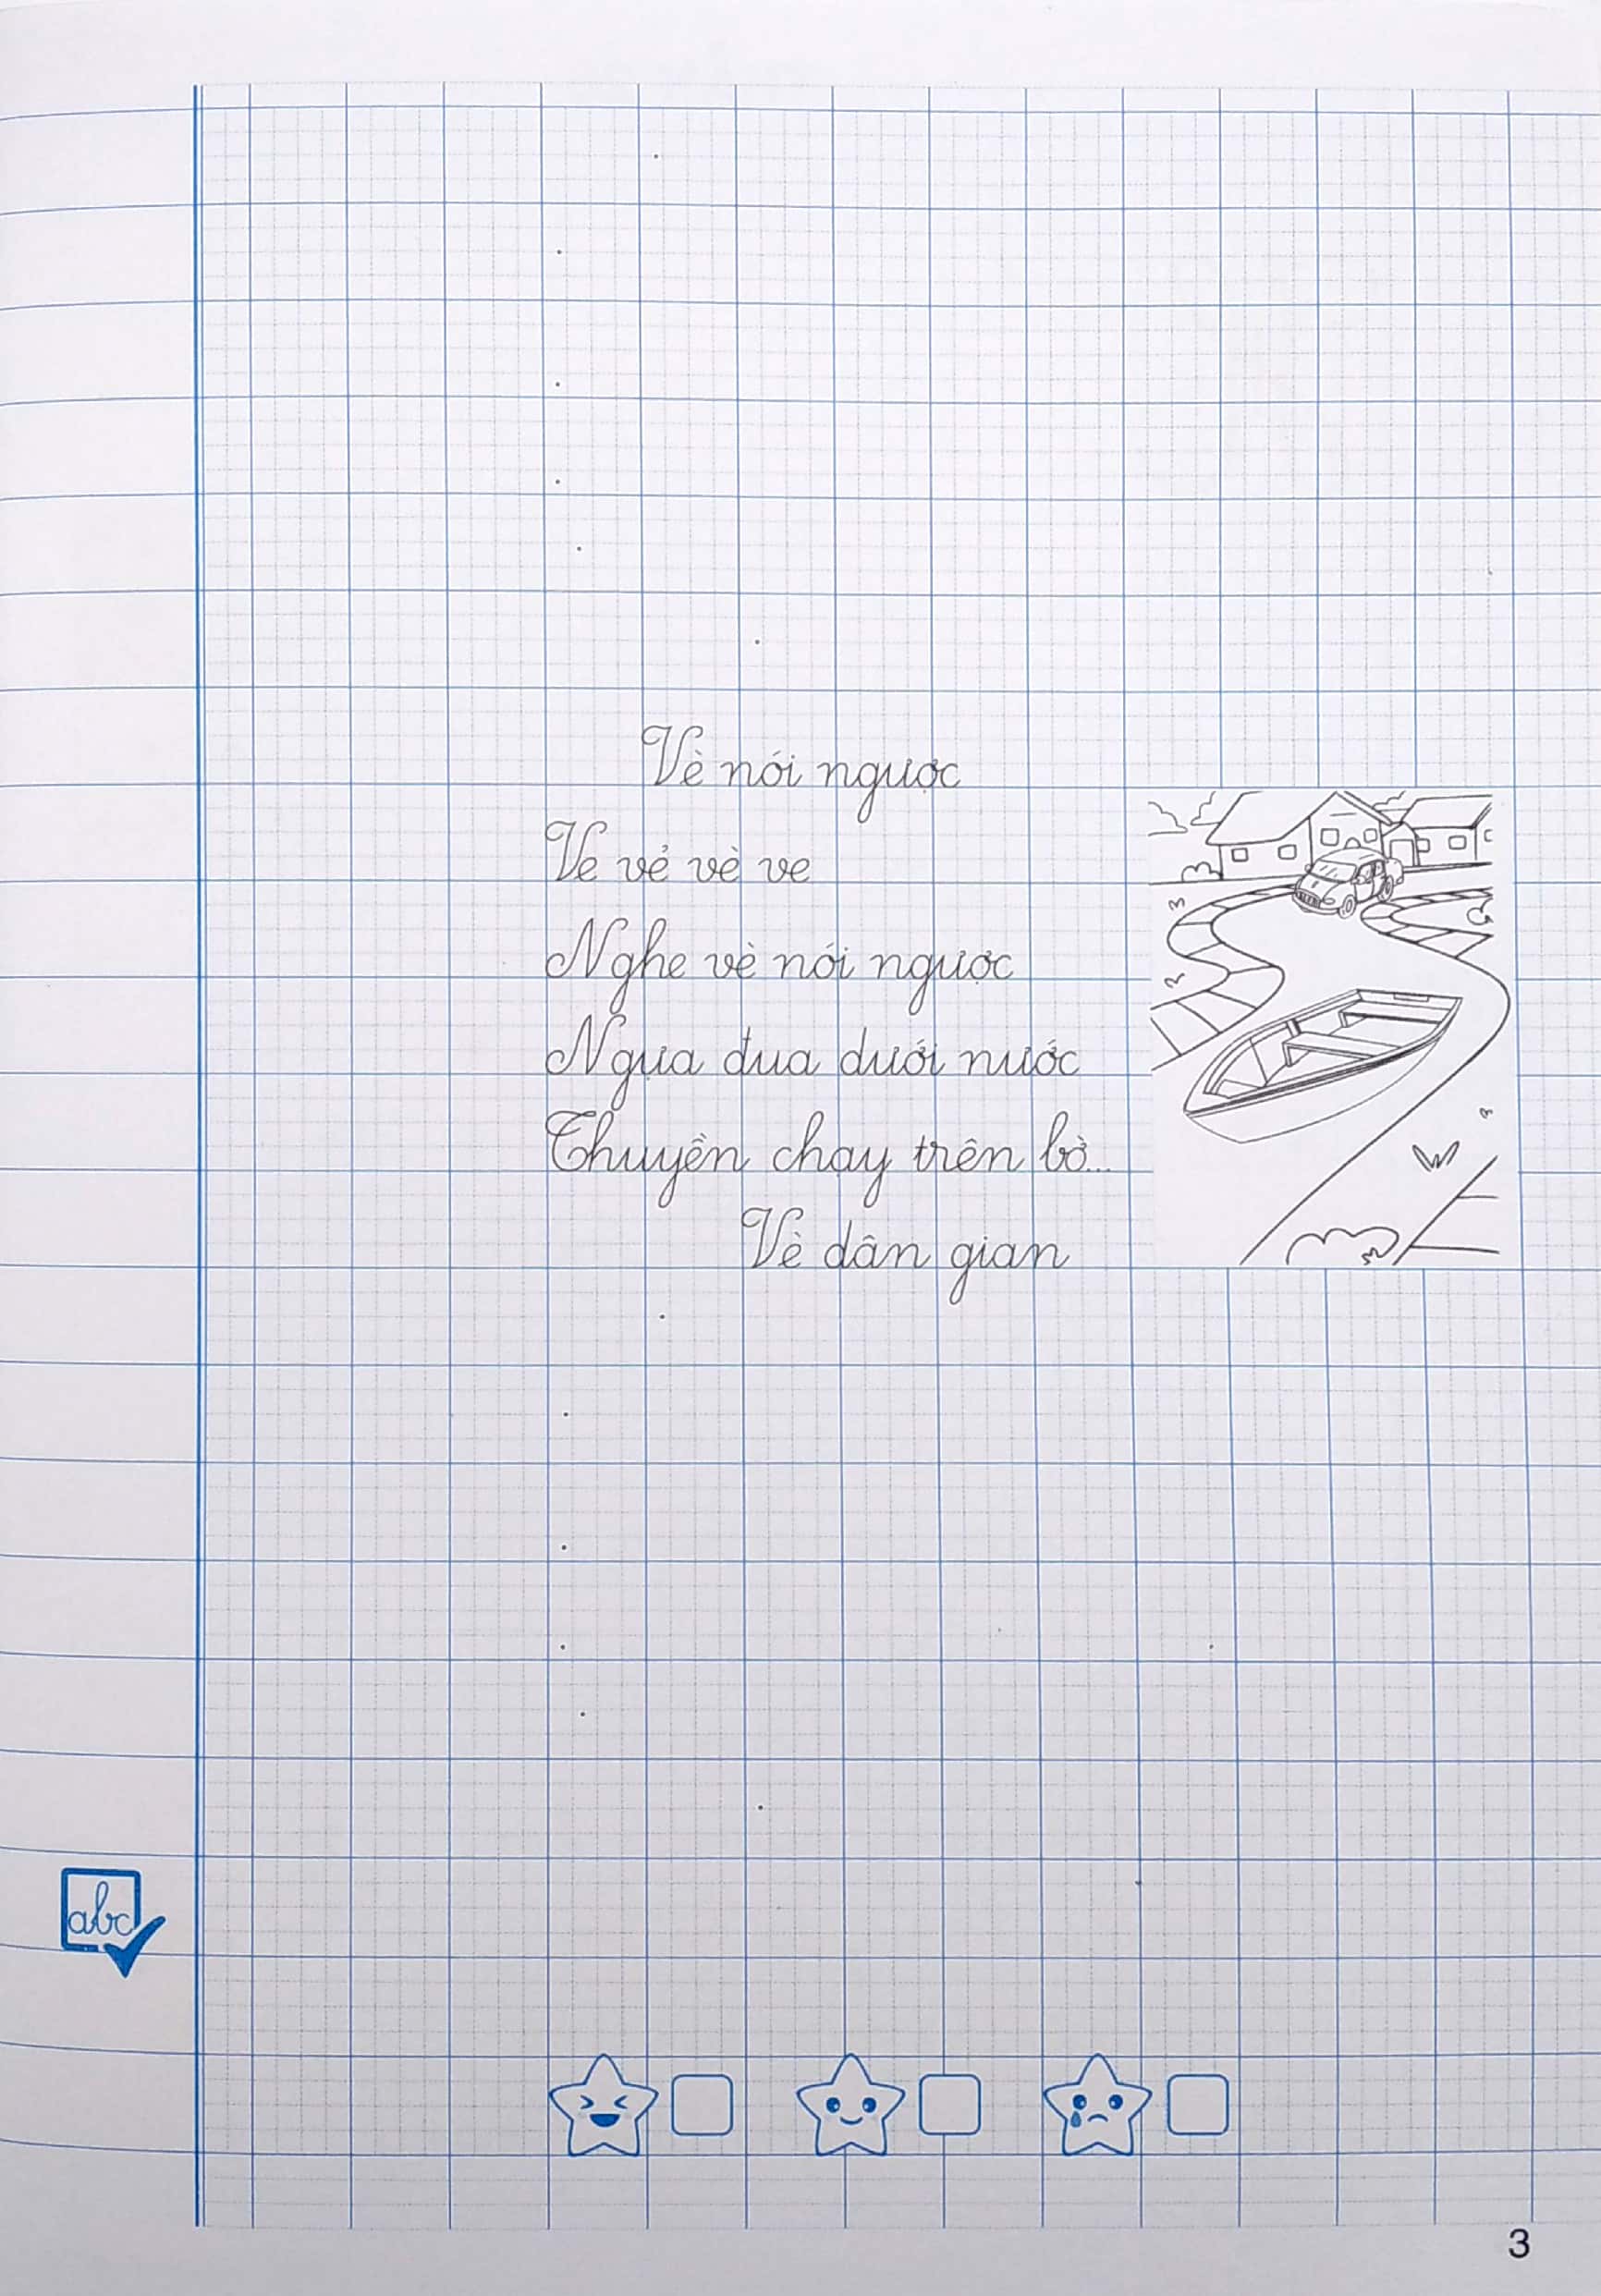 Vè nói ngược
Ve vẻ vè ve
Nghe vè nói ngược
Ngựa đua dưới nước
Thuyền chạy trên bờ...
Vè dân gian
abc
3